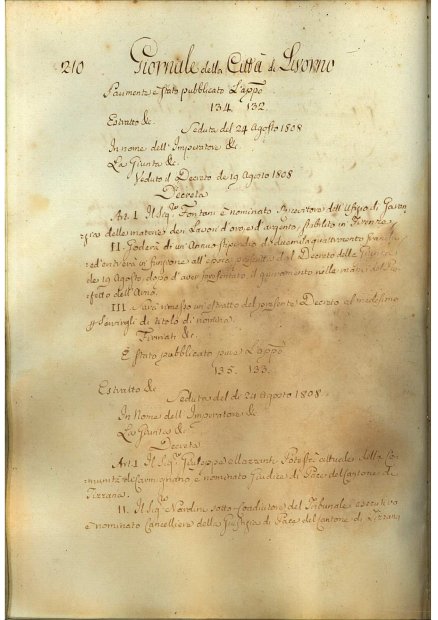 210 Giornale della Città di Livorno
Parimente è stato pubblicato l'appo
134. 132.
Estratto &c.
Seduta del 24 Agosto 1808
In nome dell'Imperatore &c.
La Giunta &c.
Veduto il Decreto de 19 Agosto 1808
Decreta
Art. I. Il Sigre Fontani è nominato Ricevitore dell'Ufizio di Garan
zia delle materie, dei Lavori d'oro, e d'argento, stabilito in Firenze
II. Goderà di un Annuo stipendio di duemila quattrocento franchi
ed entrerà in funzione all'epoca prescritta dal Decreto della Giunta
de 19 Agosto, dopo d'aver prestato il giuramento nelle mani del Pre
fetto dell'Arno
III. Sarà rimesso un estratto del presente Decreto al medesimo
p servirgli di titolo di nomina.
Firmati &c.
È stato pubblicato pure l'appo
135. 133.
Estratto &c.
Seduta del dì 24 Agosto 1808.
In Nome dell'Imperatore &c.
La Giunta &c.
Decreta
Art. I. Il Sigre Giuseppe Potestà attuale della Co
munità di Carmignano è nominato Giudice di Pace del Cantone di
Tizzana.
II. Il Sigre Nardini sotto-Coadiutore del Tribunale esecutivo
è nominato Cancelliere della Giustizia di Pace del Cantone di Tizzana